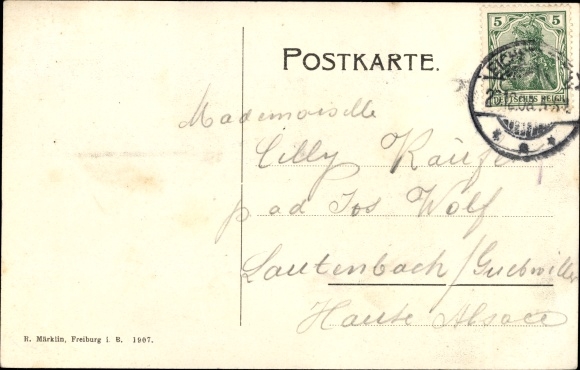 POSTKARTE.
5
DEUTSCHES REICH
Mademoiselle
Cilly
p ad Jos Wolf
Lautenbach/Guebwiller
Haute Alsace
R. Märklin, Freiburg i. B. 1907.